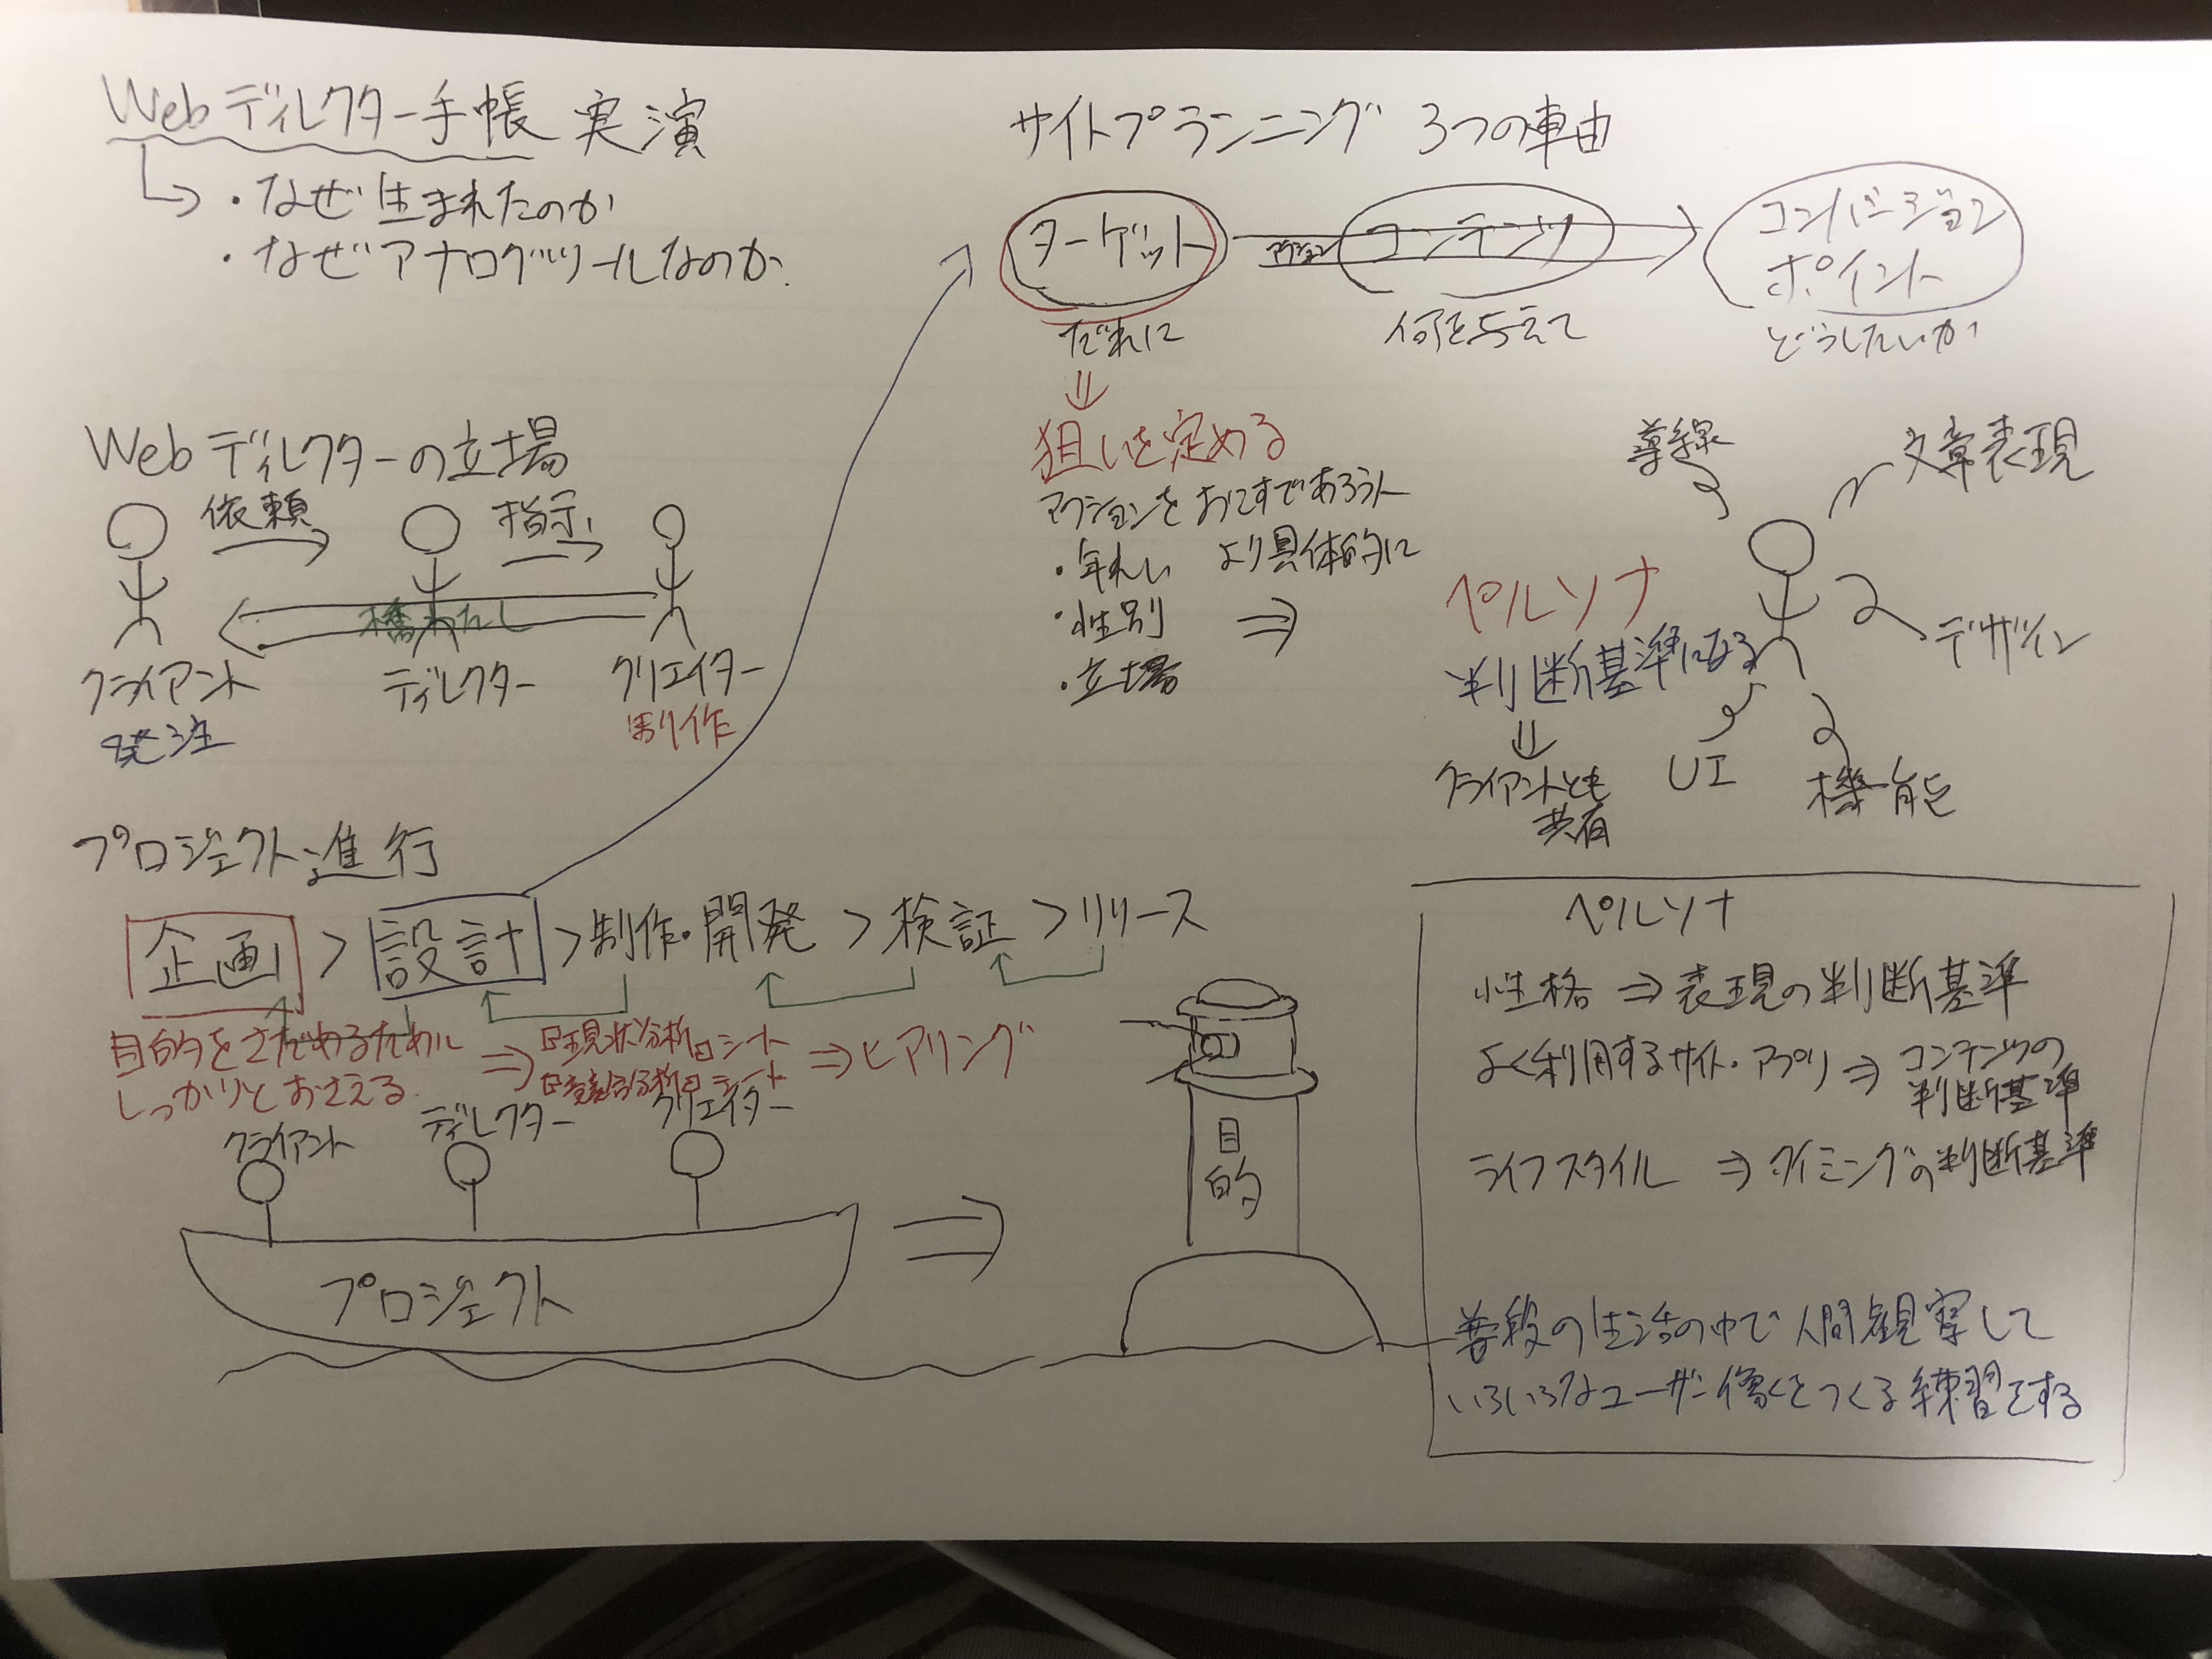 Webディレクター手帳 実演
・なぜ生まれたのか
・なぜアナログツールなのか
Webディレクターの立場
依頼
指示
橋わたし
クライアント
ディレクター
クリエイター
発注
制作
プロジェクト進行
企画 > 設計 > 制作・開発 > 検証 > リリース
目的をさだめるためにしっかりとおさえる
⇒『現状分析』シート
『競合分析』シート
⇒ヒアリング
クライアント
ディレクター
クリエイター
プロジェクト
目的
サイトプランニング 3つの車由
ターゲット
アクション
コンテンツ
コンバージョン
ポイント
だれに
何を与えて
どうしたいか
狙いを定める
アクションをおこすであろう人
・年れい
より具体的に
・性別
・立場
ペルソナ
判断基準になる
クライアントとも
共有
導線
文章表現
デザイン
UI
機能
ペルソナ
性格 ⇒ 表現の判断基準
よく利用するサイト・アプリ ⇒ コンテンツの
判断基準
ライフスタイル ⇒ タイミングの判断基準
普段の生活の中で人間観察して
いろいろなユーザー像をつくる練習をする